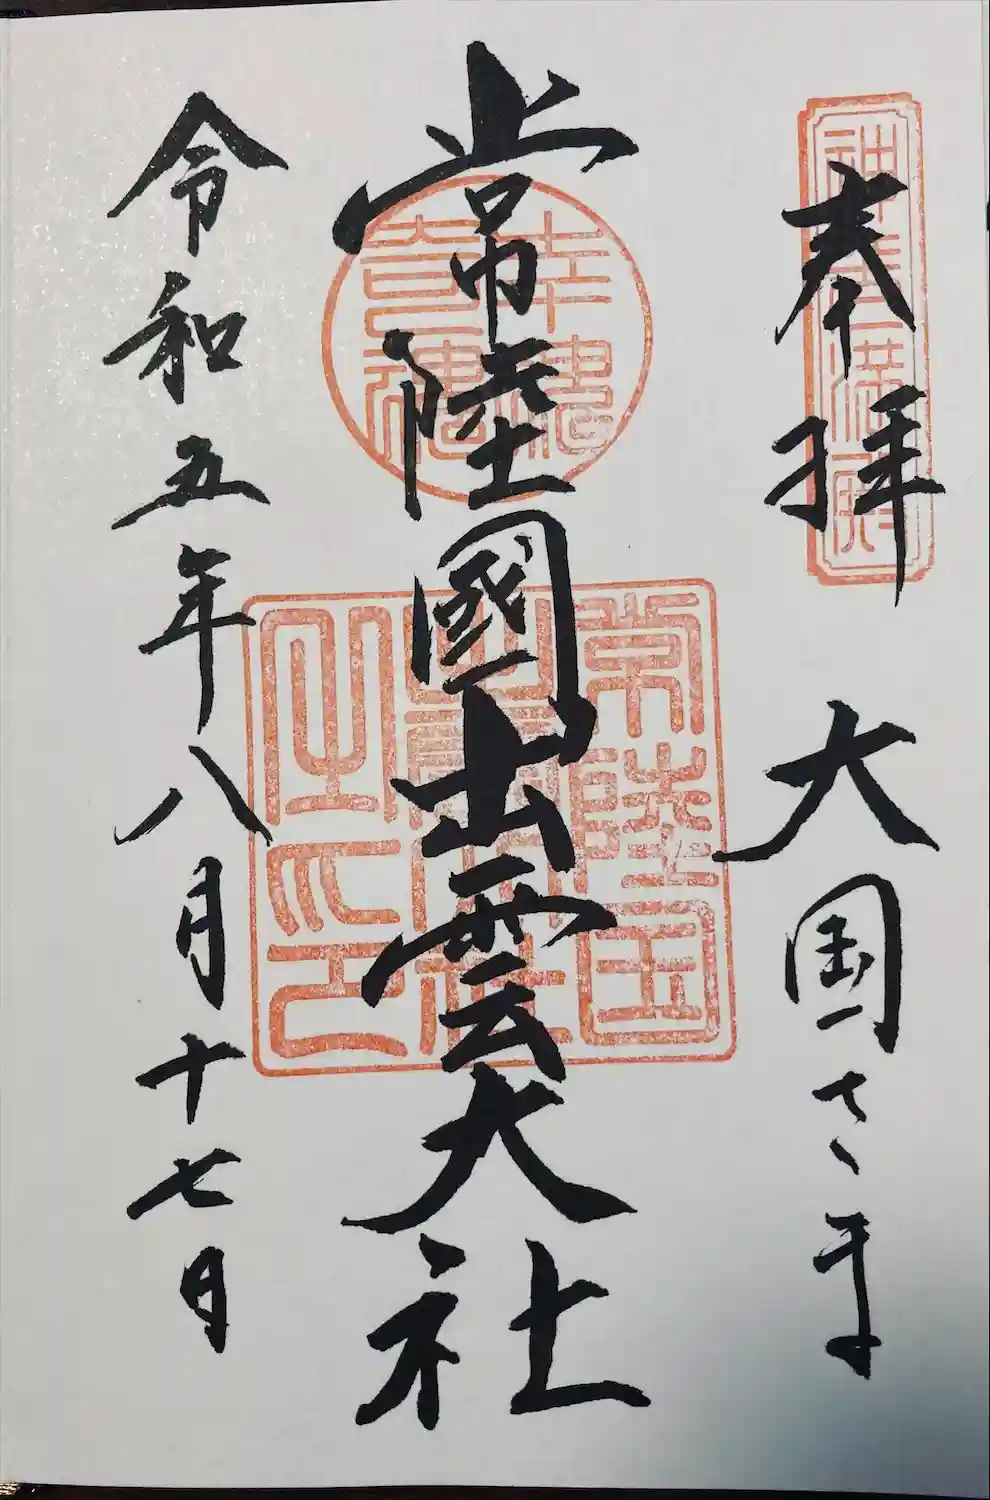 奉拝 大国さま
常陸國出雲大社
令和五年八月十七日
幸魂奇魂
常陸国出雲大社之印